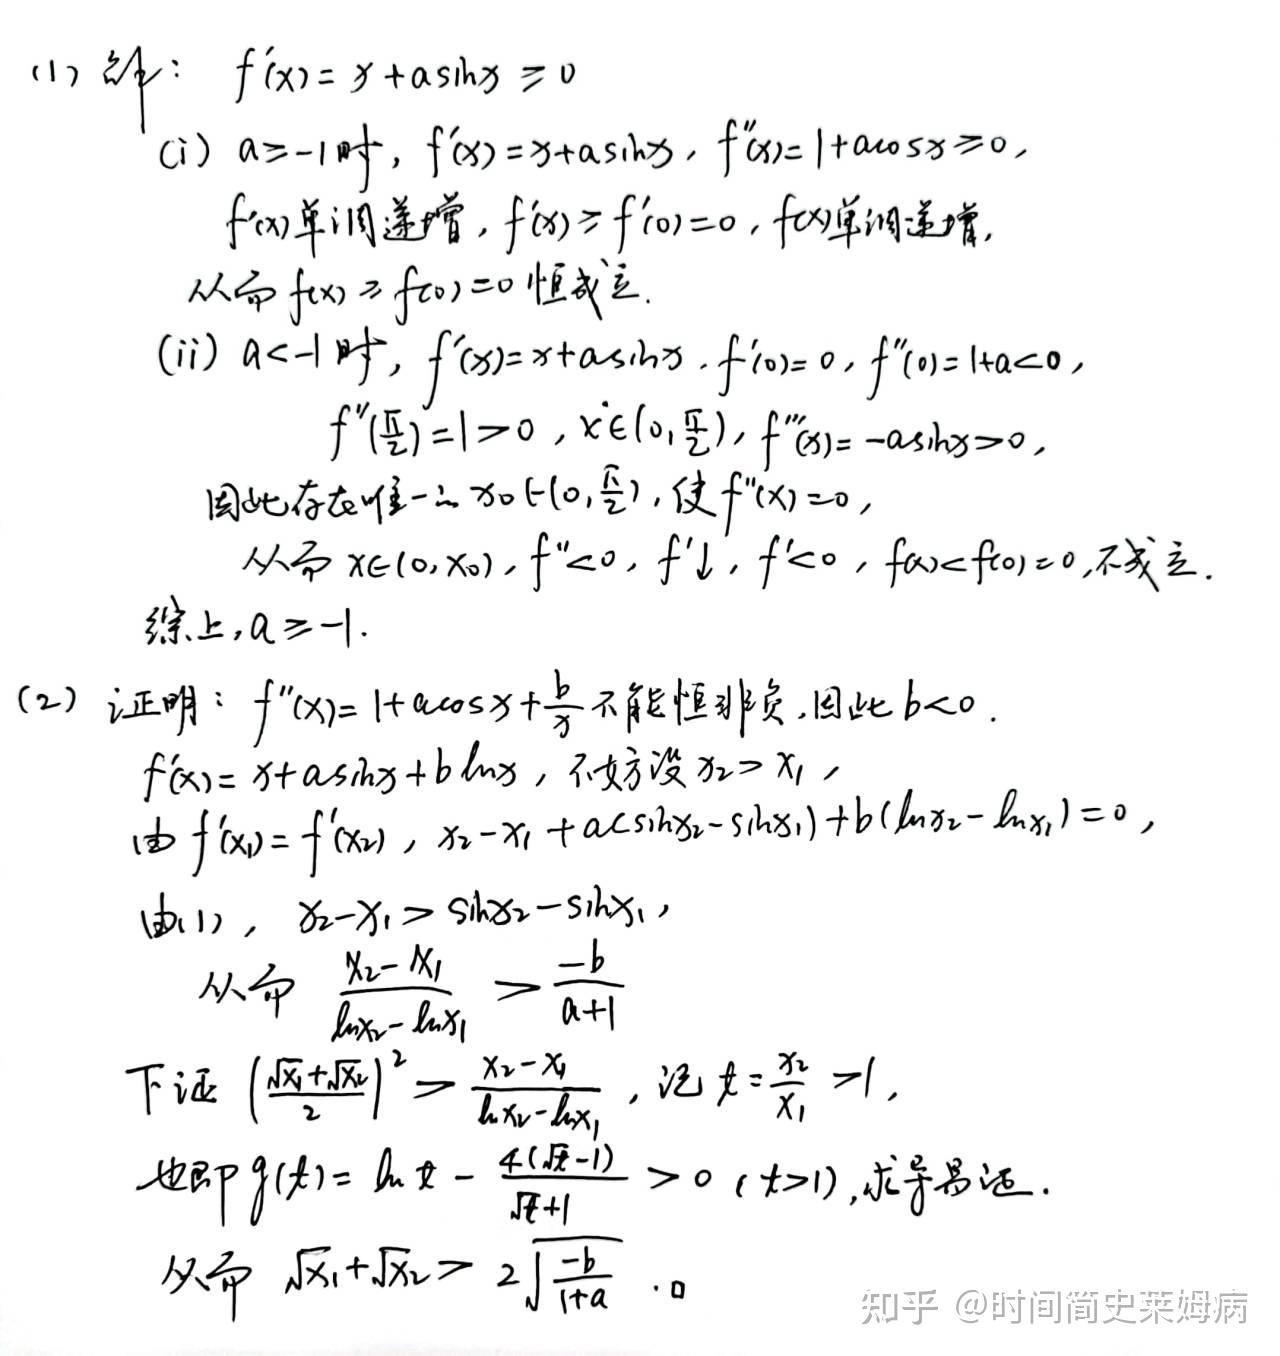 (1) 解: f'(x)=x+asinx≥0
(i) a≥-1时, f'(x)=x+asinx, f''(x)=1+acosx≥0,
f'(x)单调递增, f'(x)≥f'(0)=0, f(x)单调递增,
从而 f(x)≥f(0)=0 恒成立.
(ii) a<-1时, f'(x)=x+asinx. f'(0)=0, f''(0)=1+a<0,
f''(π/2)=1>0, x∈(0,π/2), f'''(x)=-asinx>0,
因此存在唯一的 x₀∈(0,π/2), 使 f''(x)=0,
从而 x∈(0,x₀), f''<0, f'↓, f'<0, f(x)<f(0)=0, 不成立.
综上, a≥-1.
(2) 证明: f''(x)=1+acosx+b/x 不能恒非负, 因此 b<0.
f'(x)=x+asinx+blnx, 不妨设 x₂>x₁,
由 f'(x₁)=f'(x₂), x₂-x₁+a(sinx₂-sinx₁)+b(lnx₂-lnx₁)=0,
由(1), x₂-x₁>sinx₂-sinx₁,
从而 (x₂-x₁)/(lnx₂-lnx₁) > -b/(a+1)
下证 ((√x₁+√x₂)/2)² > (x₂-x₁)/(lnx₂-lnx₁), 记 t=x₂/x₁>1,
也即 g(t)=lnt-4(√t-1)/(√t+1)>0 (t>1), 求导易证.
从而 √x₁+√x₂>2√(-b/(1+a)) .□
知乎 @时间简史莱姆病